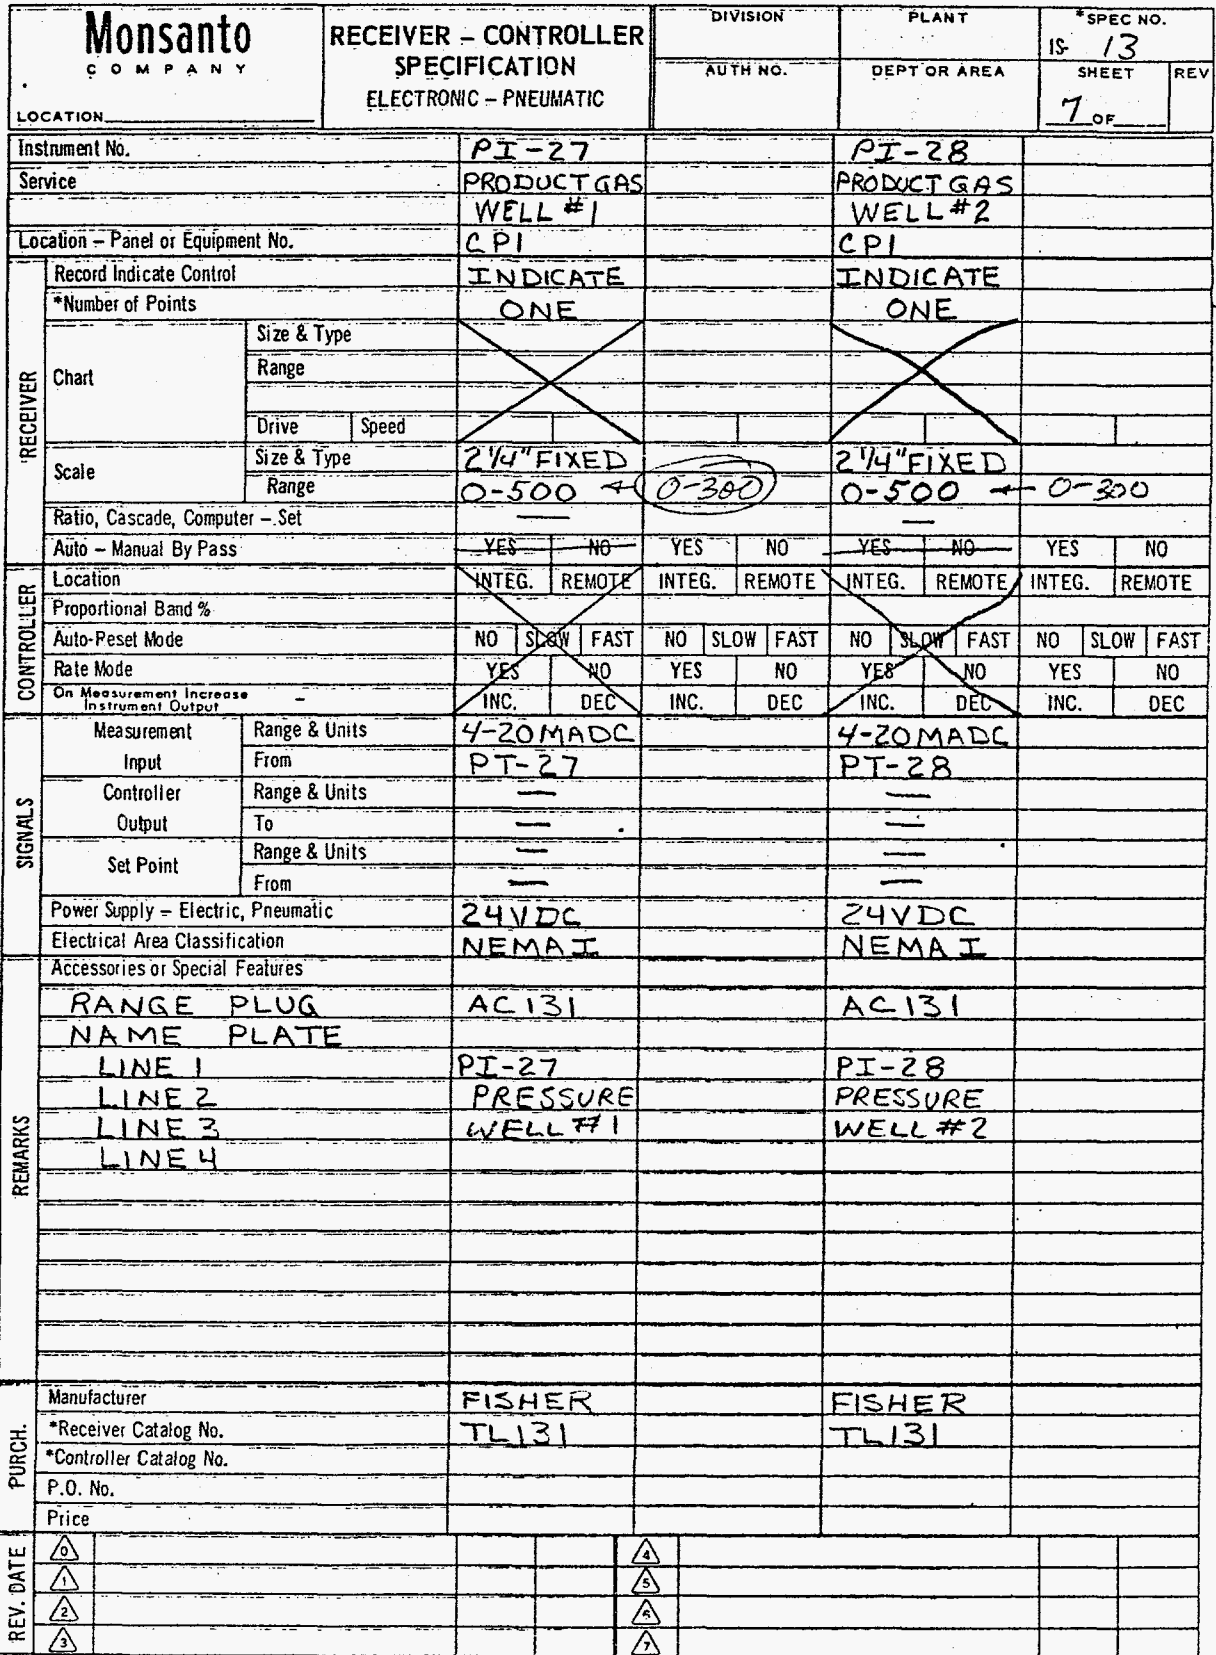 Monsanto
COMPANY
LOCATION
RECEIVER – CONTROLLER
SPECIFICATION
ELECTRONIC – PNEUMATIC
DIVISION
PLANT
*SPEC NO.
IS- 13
AUTH NO.
DEPT OR AREA
SHEET
REV
7 OF
Instrument No. PI-27 PI-28
Service PRODUCT GAS PRODUCT GAS
WELL #1 WELL #2
Location – Panel or Equipment No. CP1 CP1
RECEIVER
Record Indicate Control INDICATE INDICATE
*Number of Points ONE ONE
Chart
Size & Type
Range
Drive Speed
Scale
Size & Type 2 1/4" FIXED 2 1/4" FIXED
Range 0-500 ← 0-300 0-500 ← 0-300
Ratio, Cascade, Computer – Set — —
Auto – Manual By Pass YES NO YES NO YES NO YES NO
CONTROLLER
Location INTEG. REMOTE INTEG. REMOTE INTEG. REMOTE INTEG. REMOTE
Proportional Band %
Auto-Peset Mode NO SLOW FAST NO SLOW FAST NO SLOW FAST NO SLOW FAST
Rate Mode YES NO YES NO YES NO YES NO
On Measurement Increase
Instrument Output INC. DEC INC. DEC INC. DEC INC. DEC
SIGNALS
Measurement Range & Units 4-20MADC 4-20MADC
Input From PT-27 PT-28
Controller Range & Units — —
Output To — —
Set Point
Range & Units — —
From — —
Power Supply – Electric, Pneumatic 24VDC 24VDC
Electrical Area Classification NEMA I NEMA I
REMARKS
Accessories or Special Features
RANGE PLUG AC131 AC131
NAME PLATE
LINE 1 PI-27 PI-28
LINE 2 PRESSURE PRESSURE
LINE 3 WELL #1 WELL #2
LINE 4
PURCH.
Manufacturer FISHER FISHER
*Receiver Catalog No. TL131 TL131
*Controller Catalog No.
P.O. No.
Price
REV. DATE
0 4
1 5
2 6
3 7